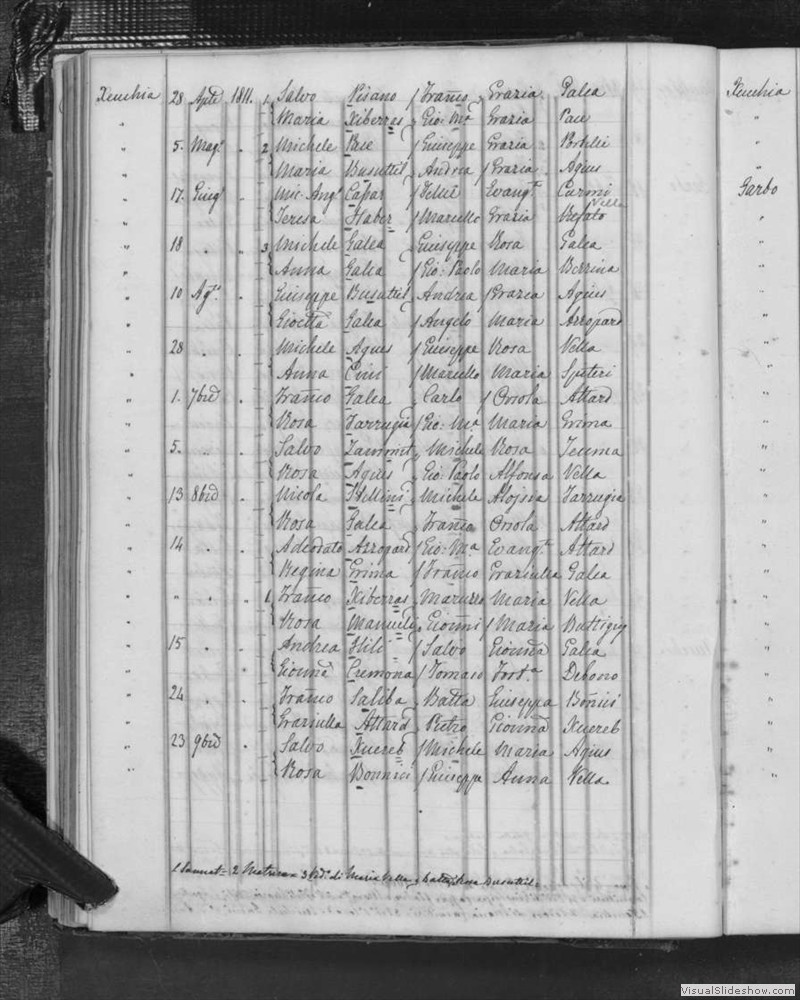 Xeuchia 28 Aple 1811. 1 Salvo Pisano / Franco Grazia Galea Xeuchia
" Maria Xiberras Gio: Ma Grazia Pace "
" 5. Mago " 2 Michele Pace / Giuseppe Grazia Portelli "
" Maria Busuttil Andrea / Grazia Agius "
" 17. Giugo " Mic: Ango Capar / Felice Evangta Curmi Garbo
" Teresa Haber / Marcello Grazia Refato Vella "
" 18 " " 3 Michele Galea Giuseppe Rosa Galea "
" Anna Galea / Gio: Paolo Maria Bezzina "
" 10 Ago " Giuseppe Busuttil Andrea / Grazia Agius "
" Gioetta Galea / Angelo Maria Azzopard "
" 28 " " Michele Agius / Giuseppe Rosa Vella "
" Anna Cini / Marcello Maria Spiteri "
" 1. 7bre " Franco Galea Carlo / Orsola Attard "
" Rosa Farrugia / Gio: Ma Maria Grima "
" 5. " " Salvo Zammit Michele Rosa Teuma "
" Rosa Agius Gio: Paolo Alfonsa Vella "
" 13 8bre " Nicola Stellini Michele Aloysia Farrugia "
" Rosa Galea Franco Orsola Attard "
" 14 " " Adeodato Azzopard / Gio: Ma Evangta Attard "
" Regina Grima / Franco Graziulla Galea "
" " " " 1 Franco Xiberras Maruzzo Maria Vella "
" Rosa Manueli Gionni / Maria Buttigieg "
" 15 " " Andrea Hili / Salvo Gionna Galea "
" Gionna Cremona / Tomaso Forta Debono "
" 24 " " Franco Saliba Batta Giuseppa Bonnici "
" Graziulla Attard Pietro Gionna Xuereb "
" 23 9bre " Salvo Xuereb / Michele Maria Agius "
" Rosa Bonnici / Giuseppe Anna Vella "
1 Sannat = 2 Matrice = 3 Vdo di Maria Vella Busuttil =
VisualSlideshow.com